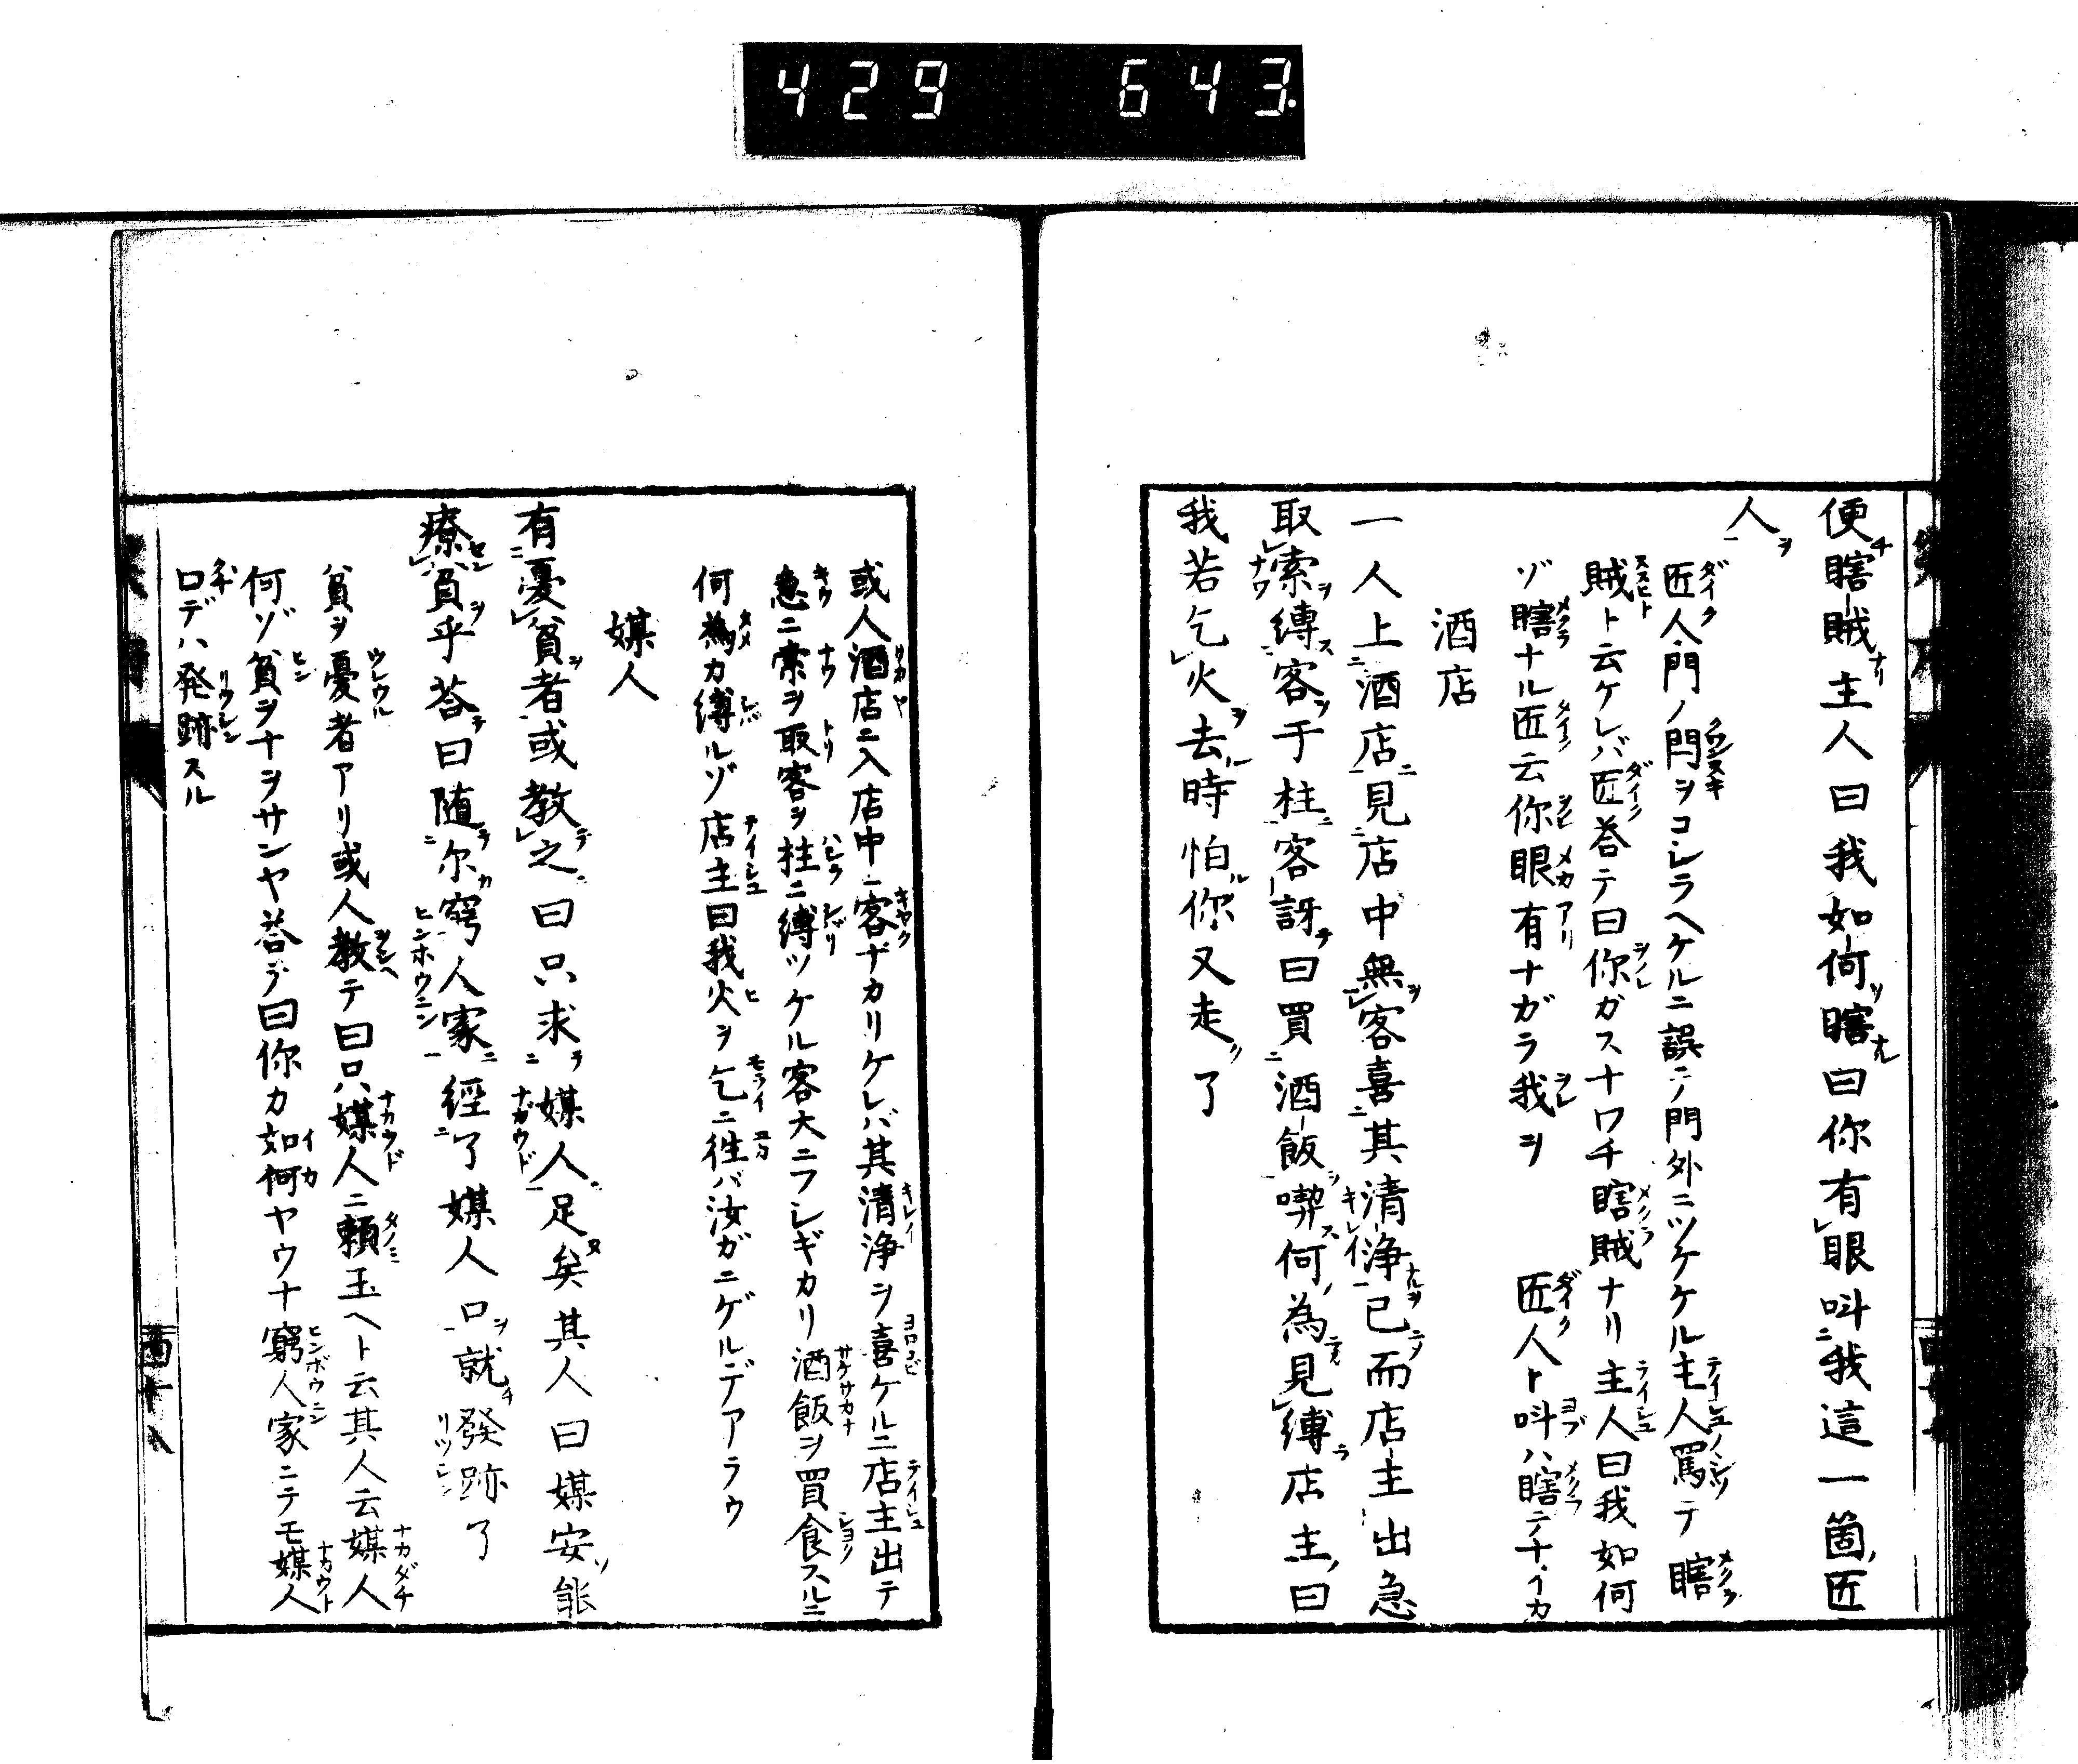 429 643.
便瞎賊主人曰我如何瞎曰你有眼呌我這一箇匠
人
匠人門ノ閂ヲコシラヘケルニ誤テ門外ニツケケル主人罵テ瞎
賊ト云ケレバ匠荅テ曰你ガスナワチ瞎賊ナリ主人曰我如何
ゾ瞎ナル匠云你眼有ナガラ我ヲ匠人ト呌ハ瞎テナイカ
酒店
一人上酒店見店中無客喜其清浄已而店主出急
取索縛客于柱客訝曰買酒飯喫何為見縛店主曰
我若乞火去時怕你又走了
或人酒店ニ入店中ニ客ナカリケレバ其清浄ヲ喜ケルニ店主出テ
急ニ索ヲ取客ヲ柱ニ縛ツケル客大ニフシギカリ酒飯ヲ買食スルニ
何為カ縛ルゾ店主曰我火ヲ乞ニ徃バ汝ガニゲルデアラウ
媒人
有憂貧者或教之曰只求媒人足矣其人曰媒安能
療貧乎荅曰随尔窮人家經了媒人口就發跡了
貧ヲ憂者アリ或人教テ曰只媒人ニ頼玉ヘト云其人云媒人
何ゾ貧ヲナヲサンヤ荅テ曰你カ如何ヤウナ窮人家ニテモ媒人
口デハ発跡スル